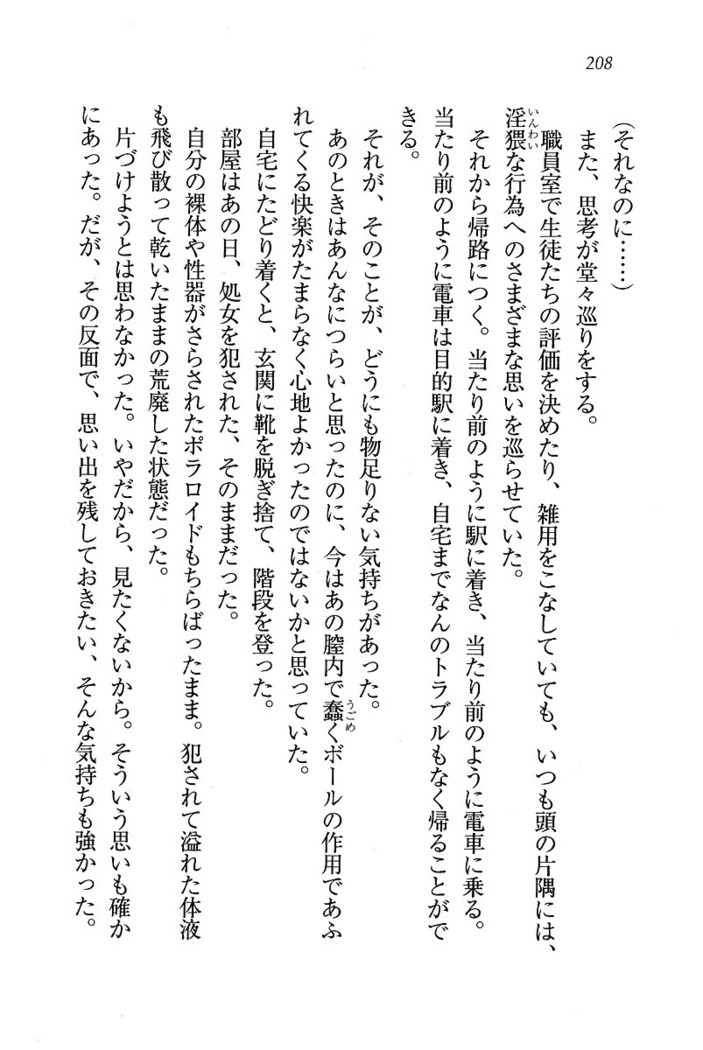 208
（それなのに……）
また、思考が堂々巡りをする。
職員室で生徒たちの評価を決めたり、雑用をこなしていても、いつも頭の片隅には、
淫猥な行為へのさまざまな思いを巡らせていた。
いんわい
それから帰路につく。当たり前のように駅に着き、当たり前のように電車に乗る。
当たり前のように電車は目的駅に着き、自宅までなんのトラブルもなく帰ることがで
きる。
それが、そのことが、どうにも物足りない気持ちがあった。
あのときはあんなにつらいと思ったのに、今はあの膣内で蠢くボールの作用であふ
うごめ
れてくる快楽がたまらなく心地よかったのではないかと思っていた。
自宅にたどり着くと、玄関に靴を脱ぎ捨て、階段を登った。
部屋はあの日、処女を犯された、そのままだった。
自分の裸体や性器がさらされたポラロイドもちらばったまま。犯されて溢れた体液
も飛び散って乾いたままの荒廃した状態だった。
片づけようとは思わなかった。いやだから、見たくないから。そういう思いも確か
にあった。だが、その反面で、思い出を残しておきたい、そんな気持ちも強かった。